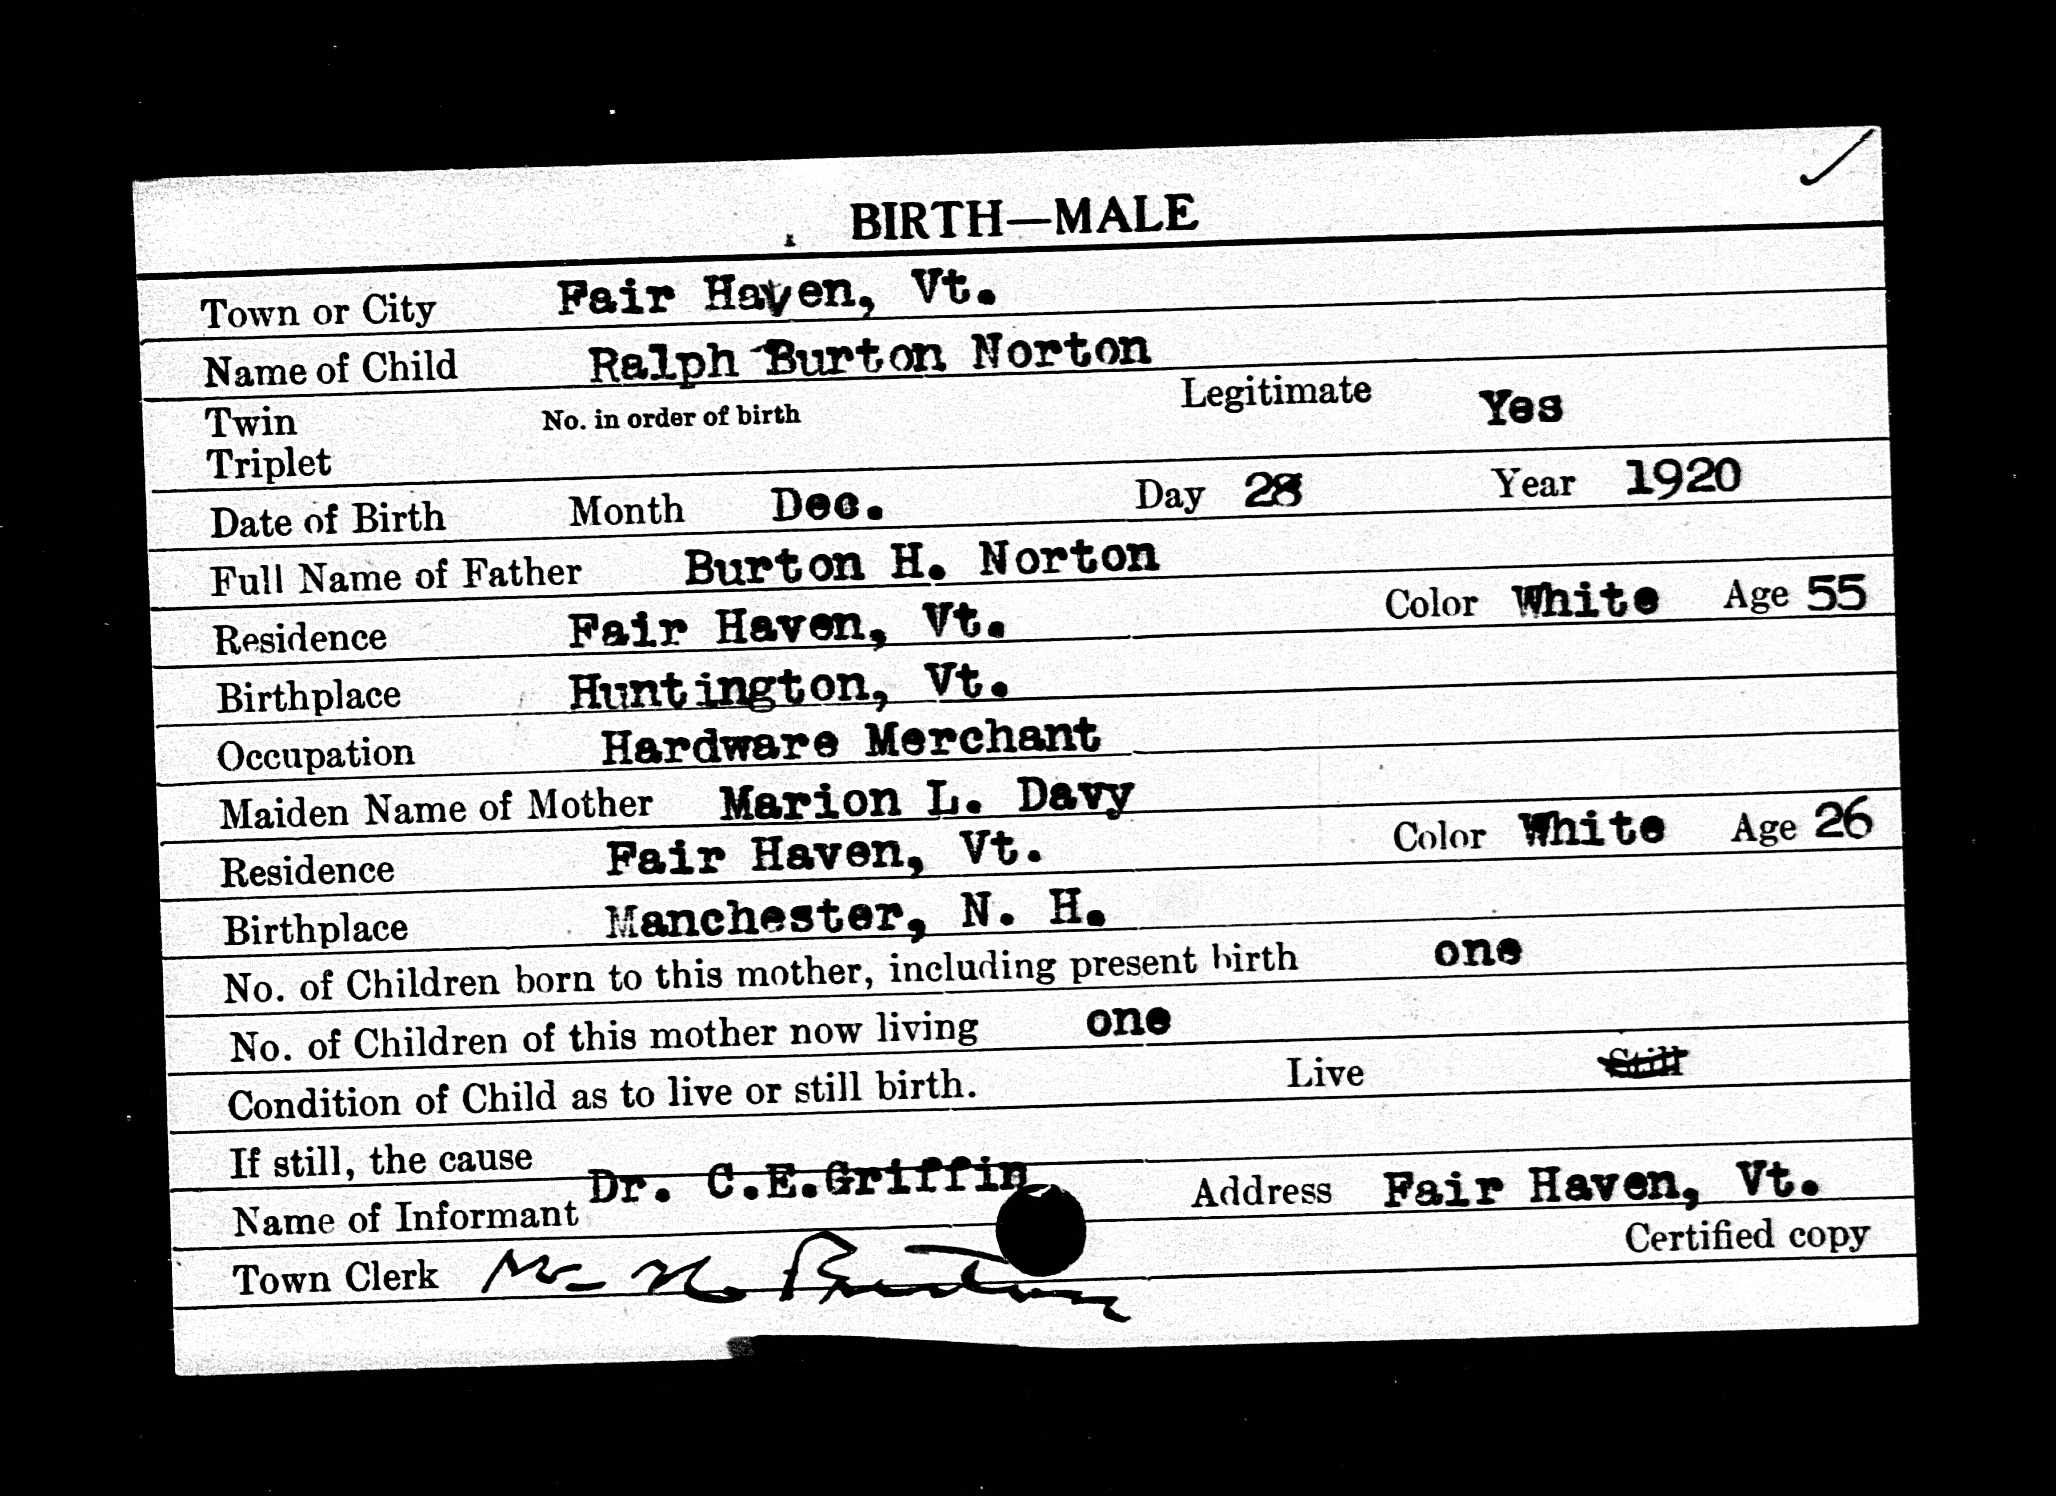 BIRTH—MALE
Town or City Fair Haven, Vt.
Name of Child Ralph Burton Norton
Twin No. in order of birth Legitimate Yes
Triplet
Date of Birth Month Dec. Day 28 Year 1920
Full Name of Father Burton H. Norton
Residence Fair Haven, Vt. Color White Age 55
Birthplace Huntington, Vt.
Occupation Hardware Merchant
Maiden Name of Mother Marion L. Davy
Residence Fair Haven, Vt. Color White Age 26
Birthplace Manchester, N. H.
No. of Children born to this mother, including present birth one
No. of Children of this mother now living one
Condition of Child as to live or still birth. Live Still
If still, the cause
Name of Informant Dr. C.E.Griffin Address Fair Haven, Vt.
Certified copy
Town Clerk